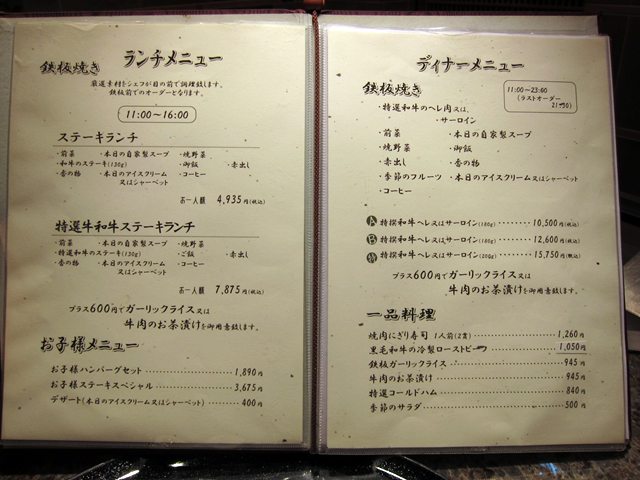 鉄板焼き ランチメニュー
厳選素材をシェフが目の前で調理致します。
鉄板前でのオーダーとなります。
11:00〜16:00
ステーキランチ
・前菜 ・本日の自家製スープ ・焼野菜
・和牛のステーキ(130g) ・御飯 ・赤出し
・香の物 ・本日のアイスクリーム ・コーヒー
又はシャーベット
お一人様 4,935円(税込)
特選牛和牛ステーキランチ
・前菜 ・本日の自家製スープ ・焼野菜
・特選和牛のステーキ(130g) ・ご飯 ・赤出し
・香の物 ・本日のアイスクリーム ・コーヒー
又はシャーベット
お一人様 7,875円(税込)
プラス600円でガーリックライス又は
牛肉のお茶漬けを御用意致します。
お子様メニュー
お子様ハンバーグセット 1,890円
お子様ステーキスペシャル 3,675円
デザート(本日のアイスクリーム又はシャーベット) 400円
ディナーメニュー
鉄板焼き
11:00〜23:00
(ラストオーダー
21:30)
・特撰和牛のヘレ肉又は、
・サーロイン
・前菜 ・本日の自家製スープ
・焼野菜 ・御飯
・赤出し ・香の物
・季節のフルーツ ・本日のアイスクリーム又はシャーベット
・コーヒー
A 特撰和牛ヘレ又はサーロイン(180g) 10,500円(税込)
B 特撰和牛ヘレ又はサーロイン(180g) 12,600円(税込)
特撰和牛ヘレ又はサーロイン(200g) 15,750円(税込)
プラス600円でガーリックライス又は
牛肉のお茶漬けを御用意致します。
一品料理
焼肉にぎり寿司 1人前(2貫) 1,260円
黒毛和牛の冷製ローストビーフ 1,050円
鉄板ガーリックライス 945円
牛肉のお茶漬け 945円
特選コールドハム 840円
季節のサラダ 500円